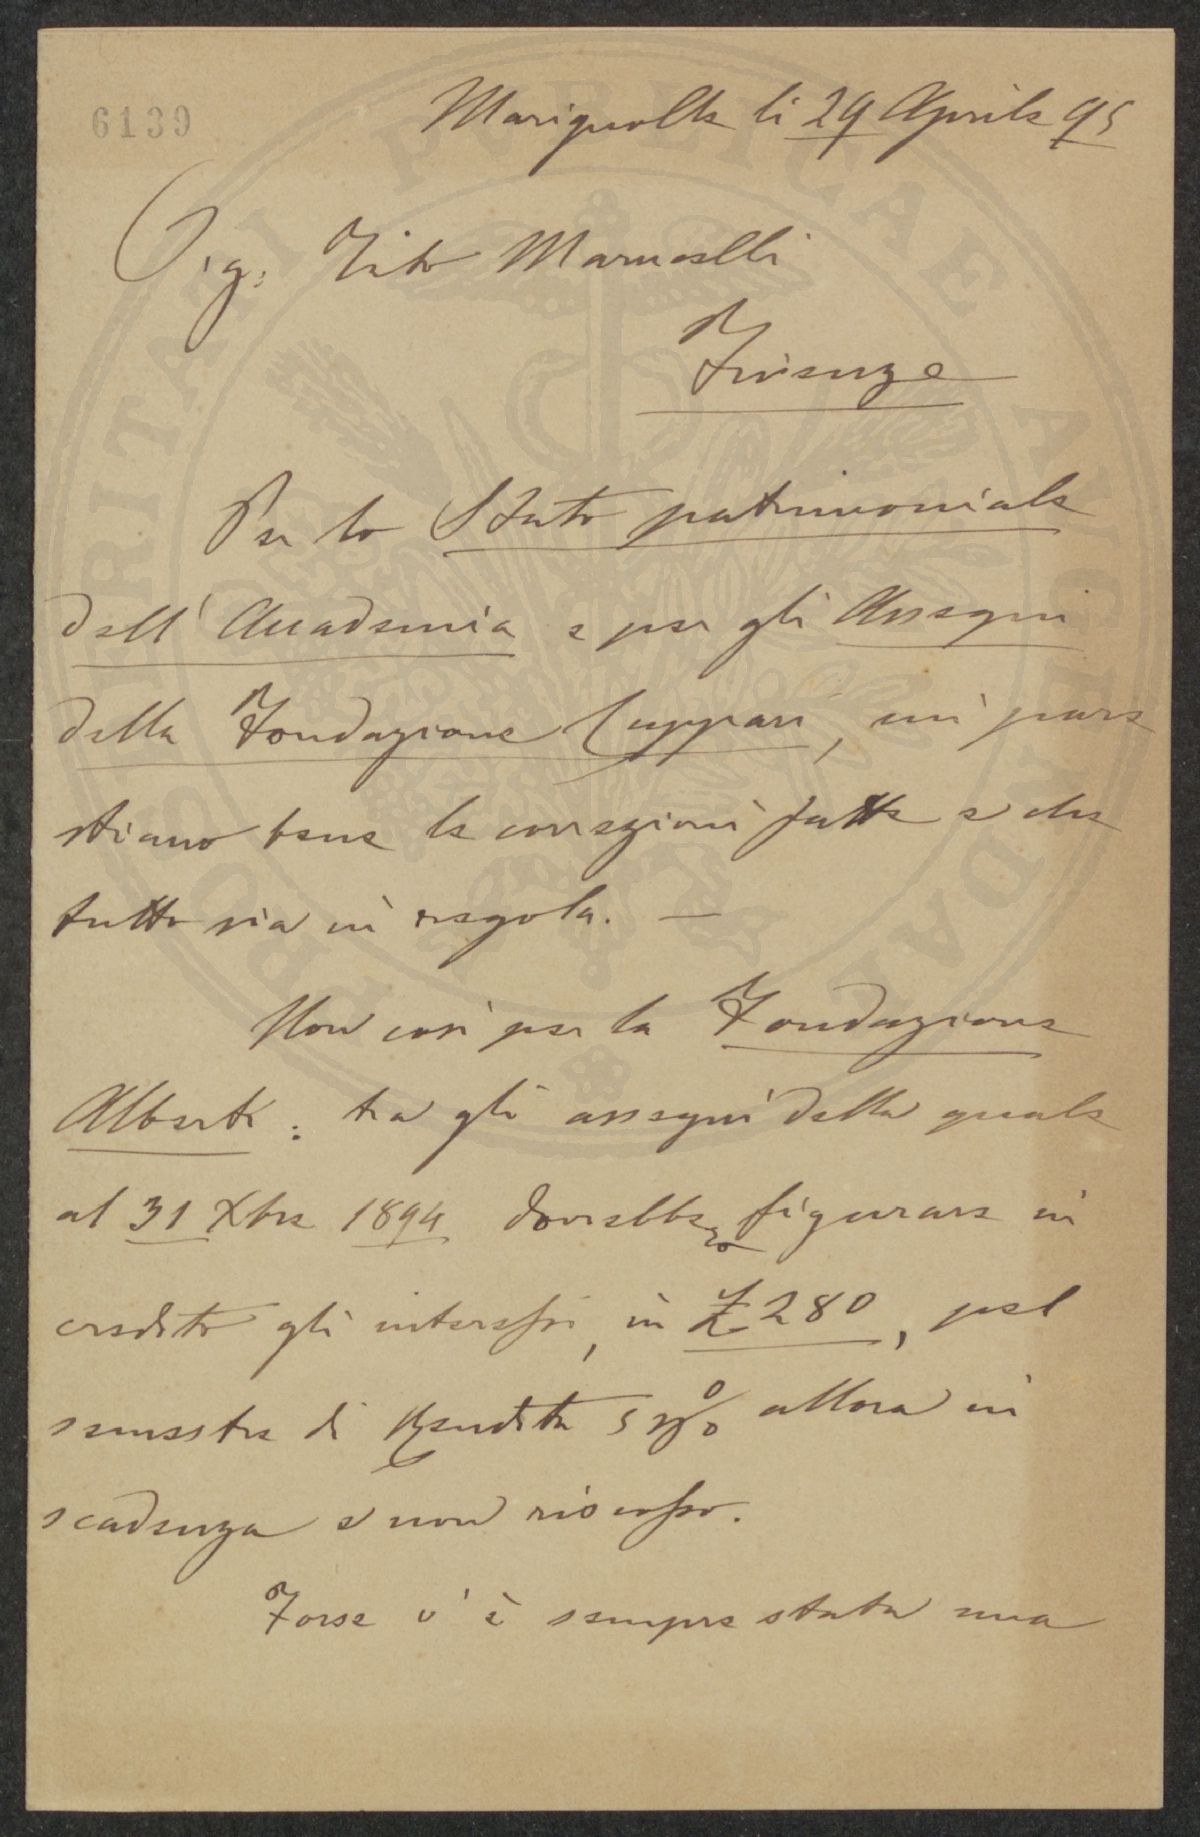 6139
Marignolle li 29 Aprile 95
Sig: Tito Marucelli
Firenze
Per lo Stato patrimoniale
dell' Accademia e per gli Assegni
della Fondazione Cuppari, mi pare
stiano bene le correzioni fatte e che
tutto sia in regola. —
Non così per la Fondazione
Alberti: tra gli assegni della quale
al 31 Xbre 1894 dovrebbero figurare in
credito gli interessi, in £ 280, pel
semestre di Rendita 5 p% allora in
scadenza e non riscosso.
Forse v'è sempre stata una
PROSPERITATI PUBLICAE AUGENDAE